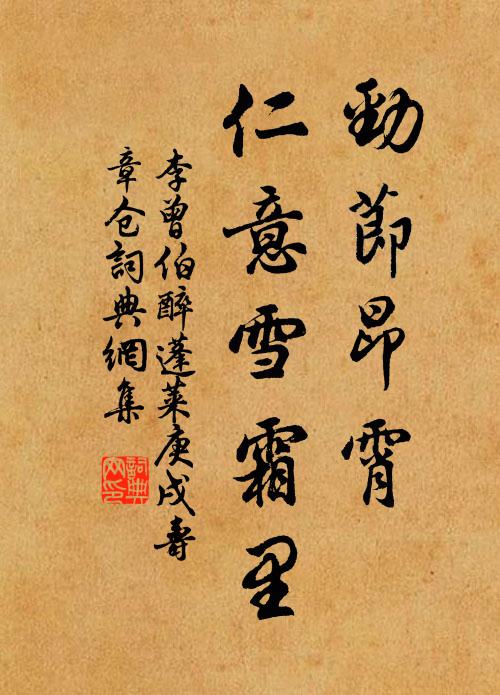 勁節昂霄
仁意雪霜里
李曾伯醉蓬萊庚戌壽
章仓詞典網集
詞典网印